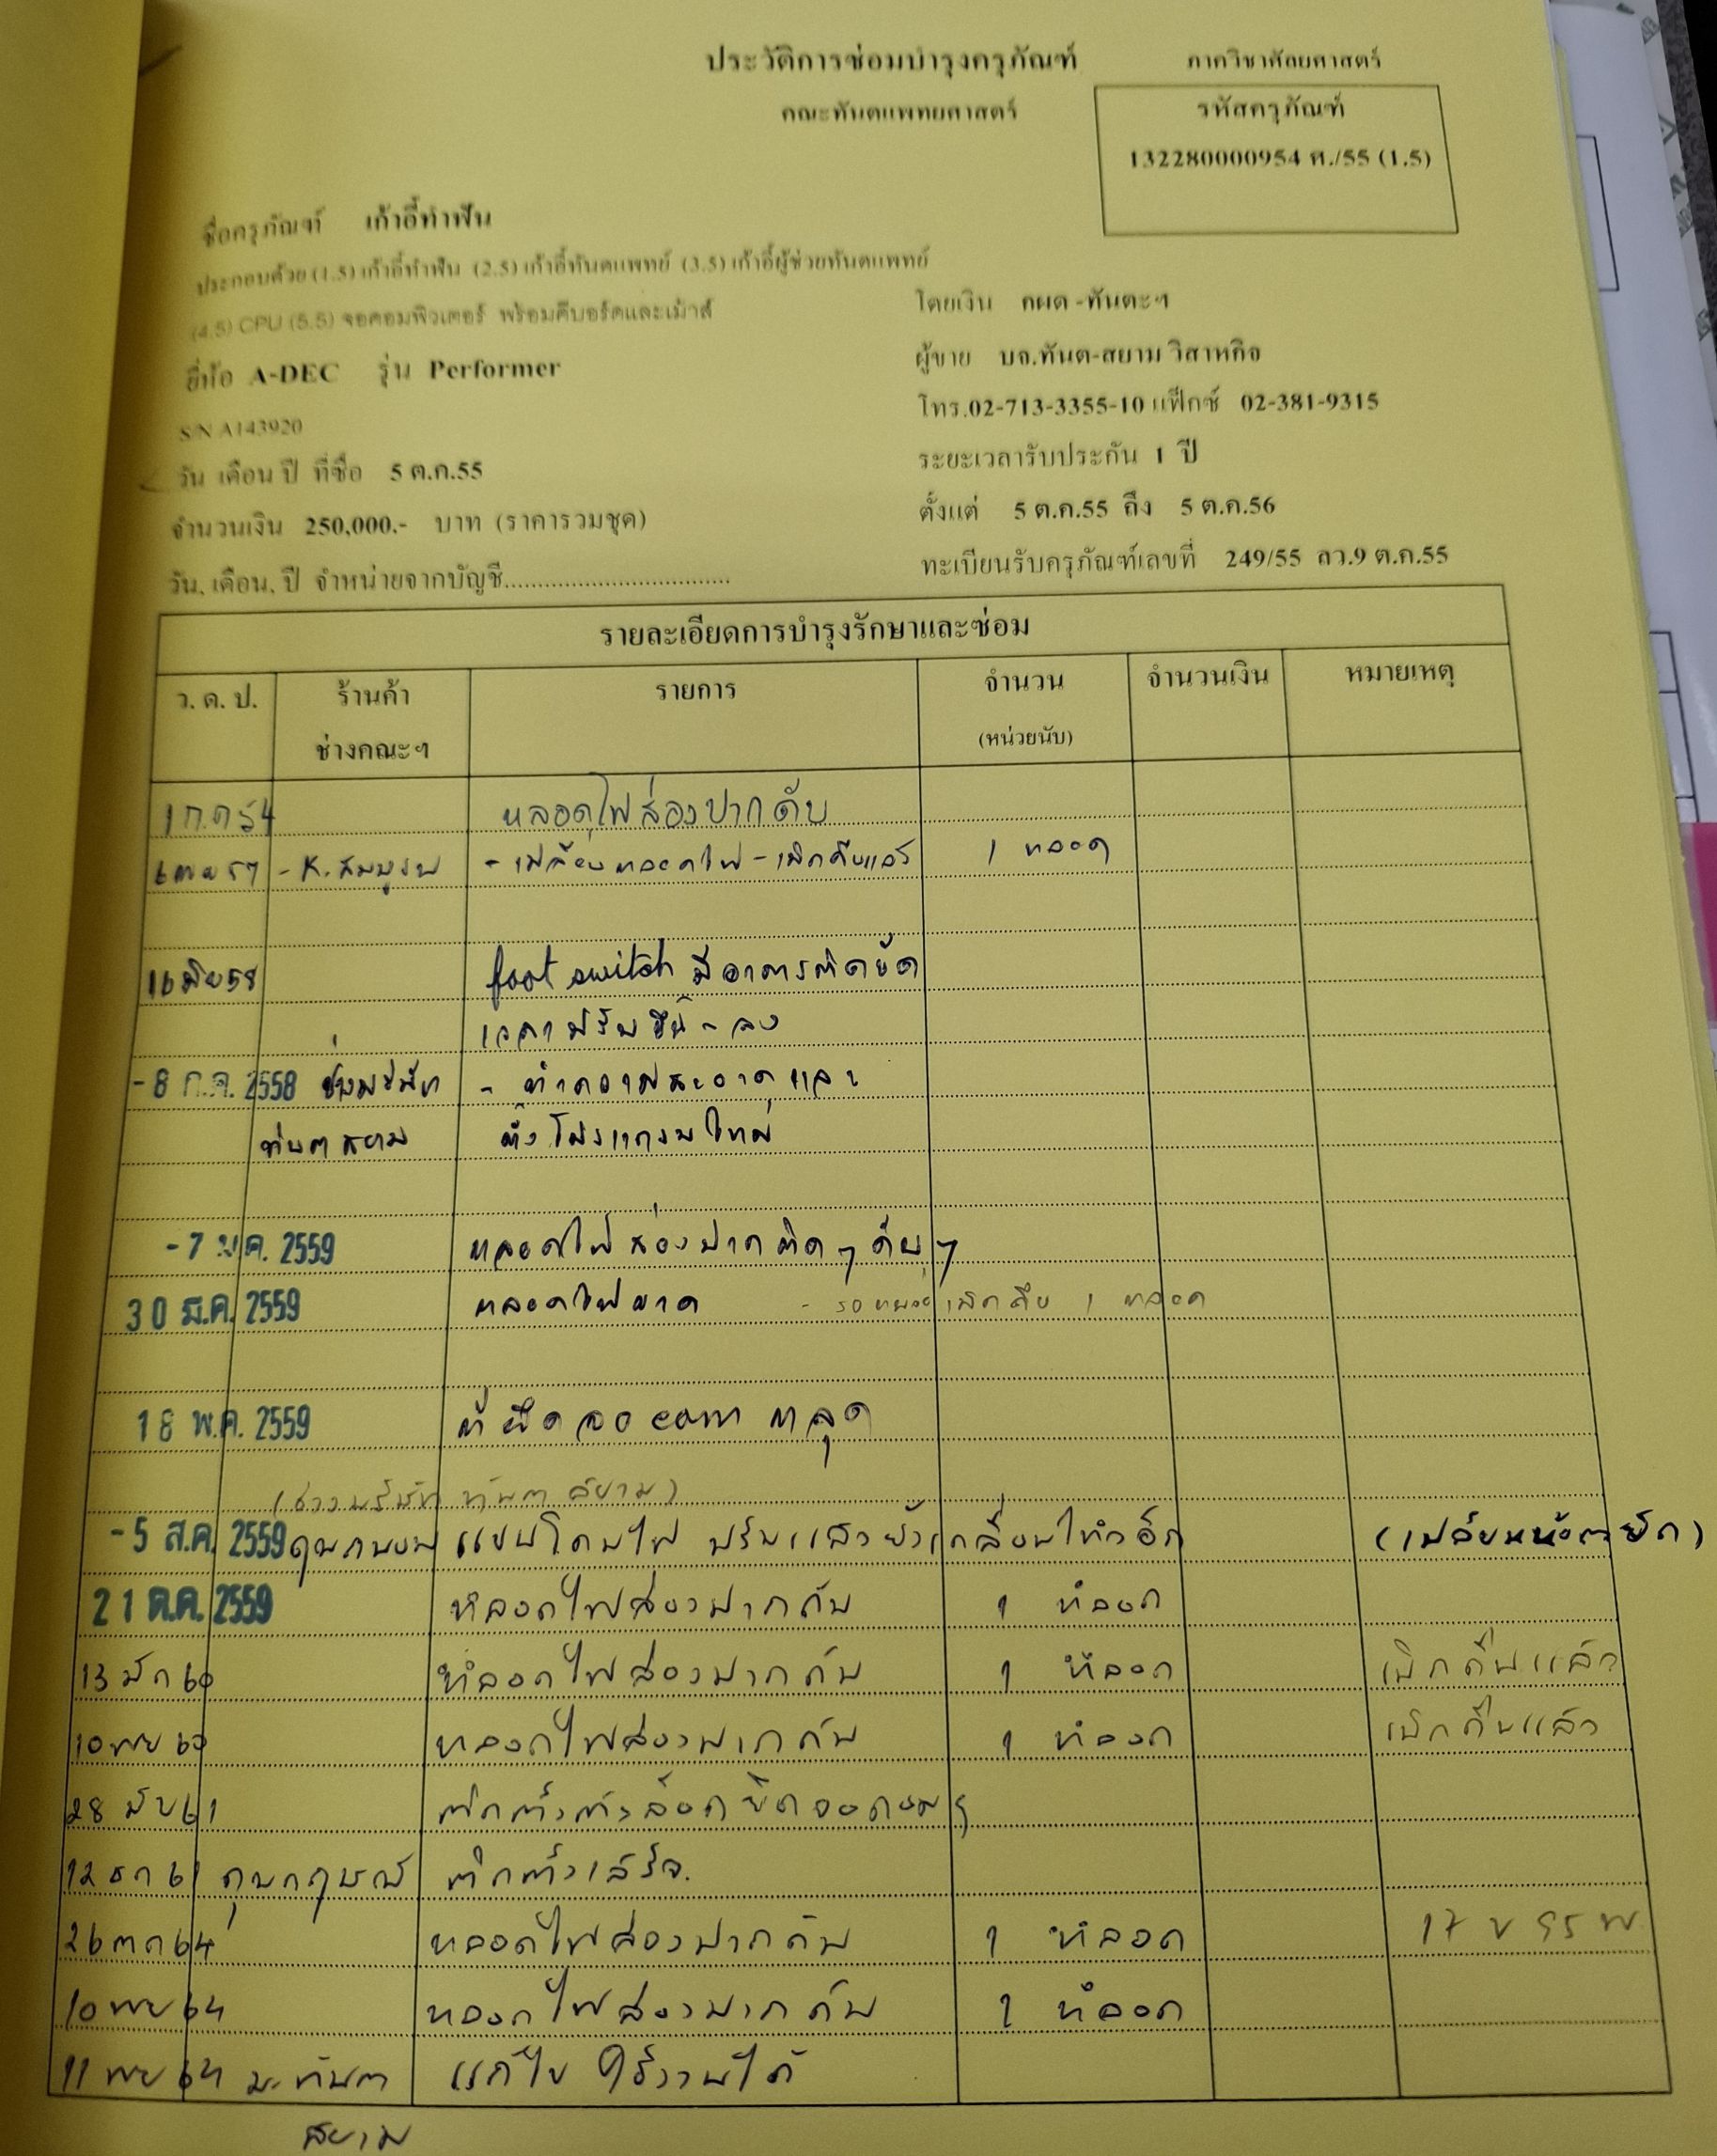 ประวัติการซ่อมบำรุงครุภัณฑ์
ภาควิชาศัลยศาสตร์
คณะทันตแพทยศาสตร์
รหัสครุภัณฑ์
132280000954 ศ./55 (1.5)
ชื่อครุภัณฑ์ เก้าอี้ทำฟัน
ประกอบด้วย (1.5) เก้าอี้ทำฟัน (2.5) เก้าอี้ทันตแพทย์ (3.5) เก้าอี้ผู้ช่วยทันตแพทย์
(4.5) CPU (5.5) จอคอมพิวเตอร์ พร้อมคีบอร์ดและเม้าส์
โดยเงิน กผด -ทันตะฯ
ยี่ห้อ A-DEC รุ่น Performer
ผู้ขาย บจ.ทันต-สยาม วิสาหกิจ
S/N A143920
โทร.02-713-3355-10 แฟ็กซ์ 02-381-9315
วัน เดือน ปี ที่ซื้อ 5 ต.ค.55
ระยะเวลารับประกัน 1 ปี
จำนวนเงิน 250,000.- บาท (ราคารวมชุด)
ตั้งแต่ 5 ต.ค.55 ถึง 5 ต.ค.56
วัน, เดือน, ปี จำหน่ายจากบัญชี..................................
ทะเบียนรับครุภัณฑ์เลขที่ 249/55 ลว.9 ต.ค.55
รายละเอียดการบำรุงรักษาและซ่อม
ว. ด. ป. ร้านค้า รายการ จำนวน จำนวนเงิน หมายเหตุ
ช่างคณะฯ (หน่วยนับ)
หลอดไฟส่องปากดับ
- K. - เปลี่ยนหลอดไฟ - เบิกคืนแล้ว 1 หลอด
foot switch มีอาการติดขัด
เวลาปรับขึ้น - ลง
- 8 ก.ค. 2558 ช่างบริษัท - ทำความสะอาดและ
ทันตสยาม ตั้งโปรแกรมใหม่
- 7 ม.ค. 2559 หลอดไฟส่องปากติดๆ ดับๆ
30 มี.ค. 2559 หลอดไฟขาด - เบิกคืน 1 หลอด
18 พ.ค. 2559 ที่ยึดจอ com หลุด
(ช่างบริษัท ทันตสยาม)
- 5 ส.ค. 2559 แขนโคมไฟ ปรับแล้วยังเคลื่อนไหวอีก
21 ต.ค. 2559 หลอดไฟส่องปากดับ 1 หลอด
13 มีค 60 หลอดไฟส่องปากดับ 1 หลอด เบิกคืนแล้ว
10 พย 60 หลอดไฟส่องปากดับ 1 หลอด เบิกคืนแล้ว
28 61 ติดตั้งตัวล็อคยึดจอคอมฯ
12 ธค 61 ติดตั้งเสร็จ.
26 ตค 64 หลอดไฟส่องปากดับ 1 หลอด
10 พย 64 หลอดไฟส่องปากดับ 1 หลอด
11 พย 64 บ. ทันต แก้ไข ใช้งานได้
สยาม